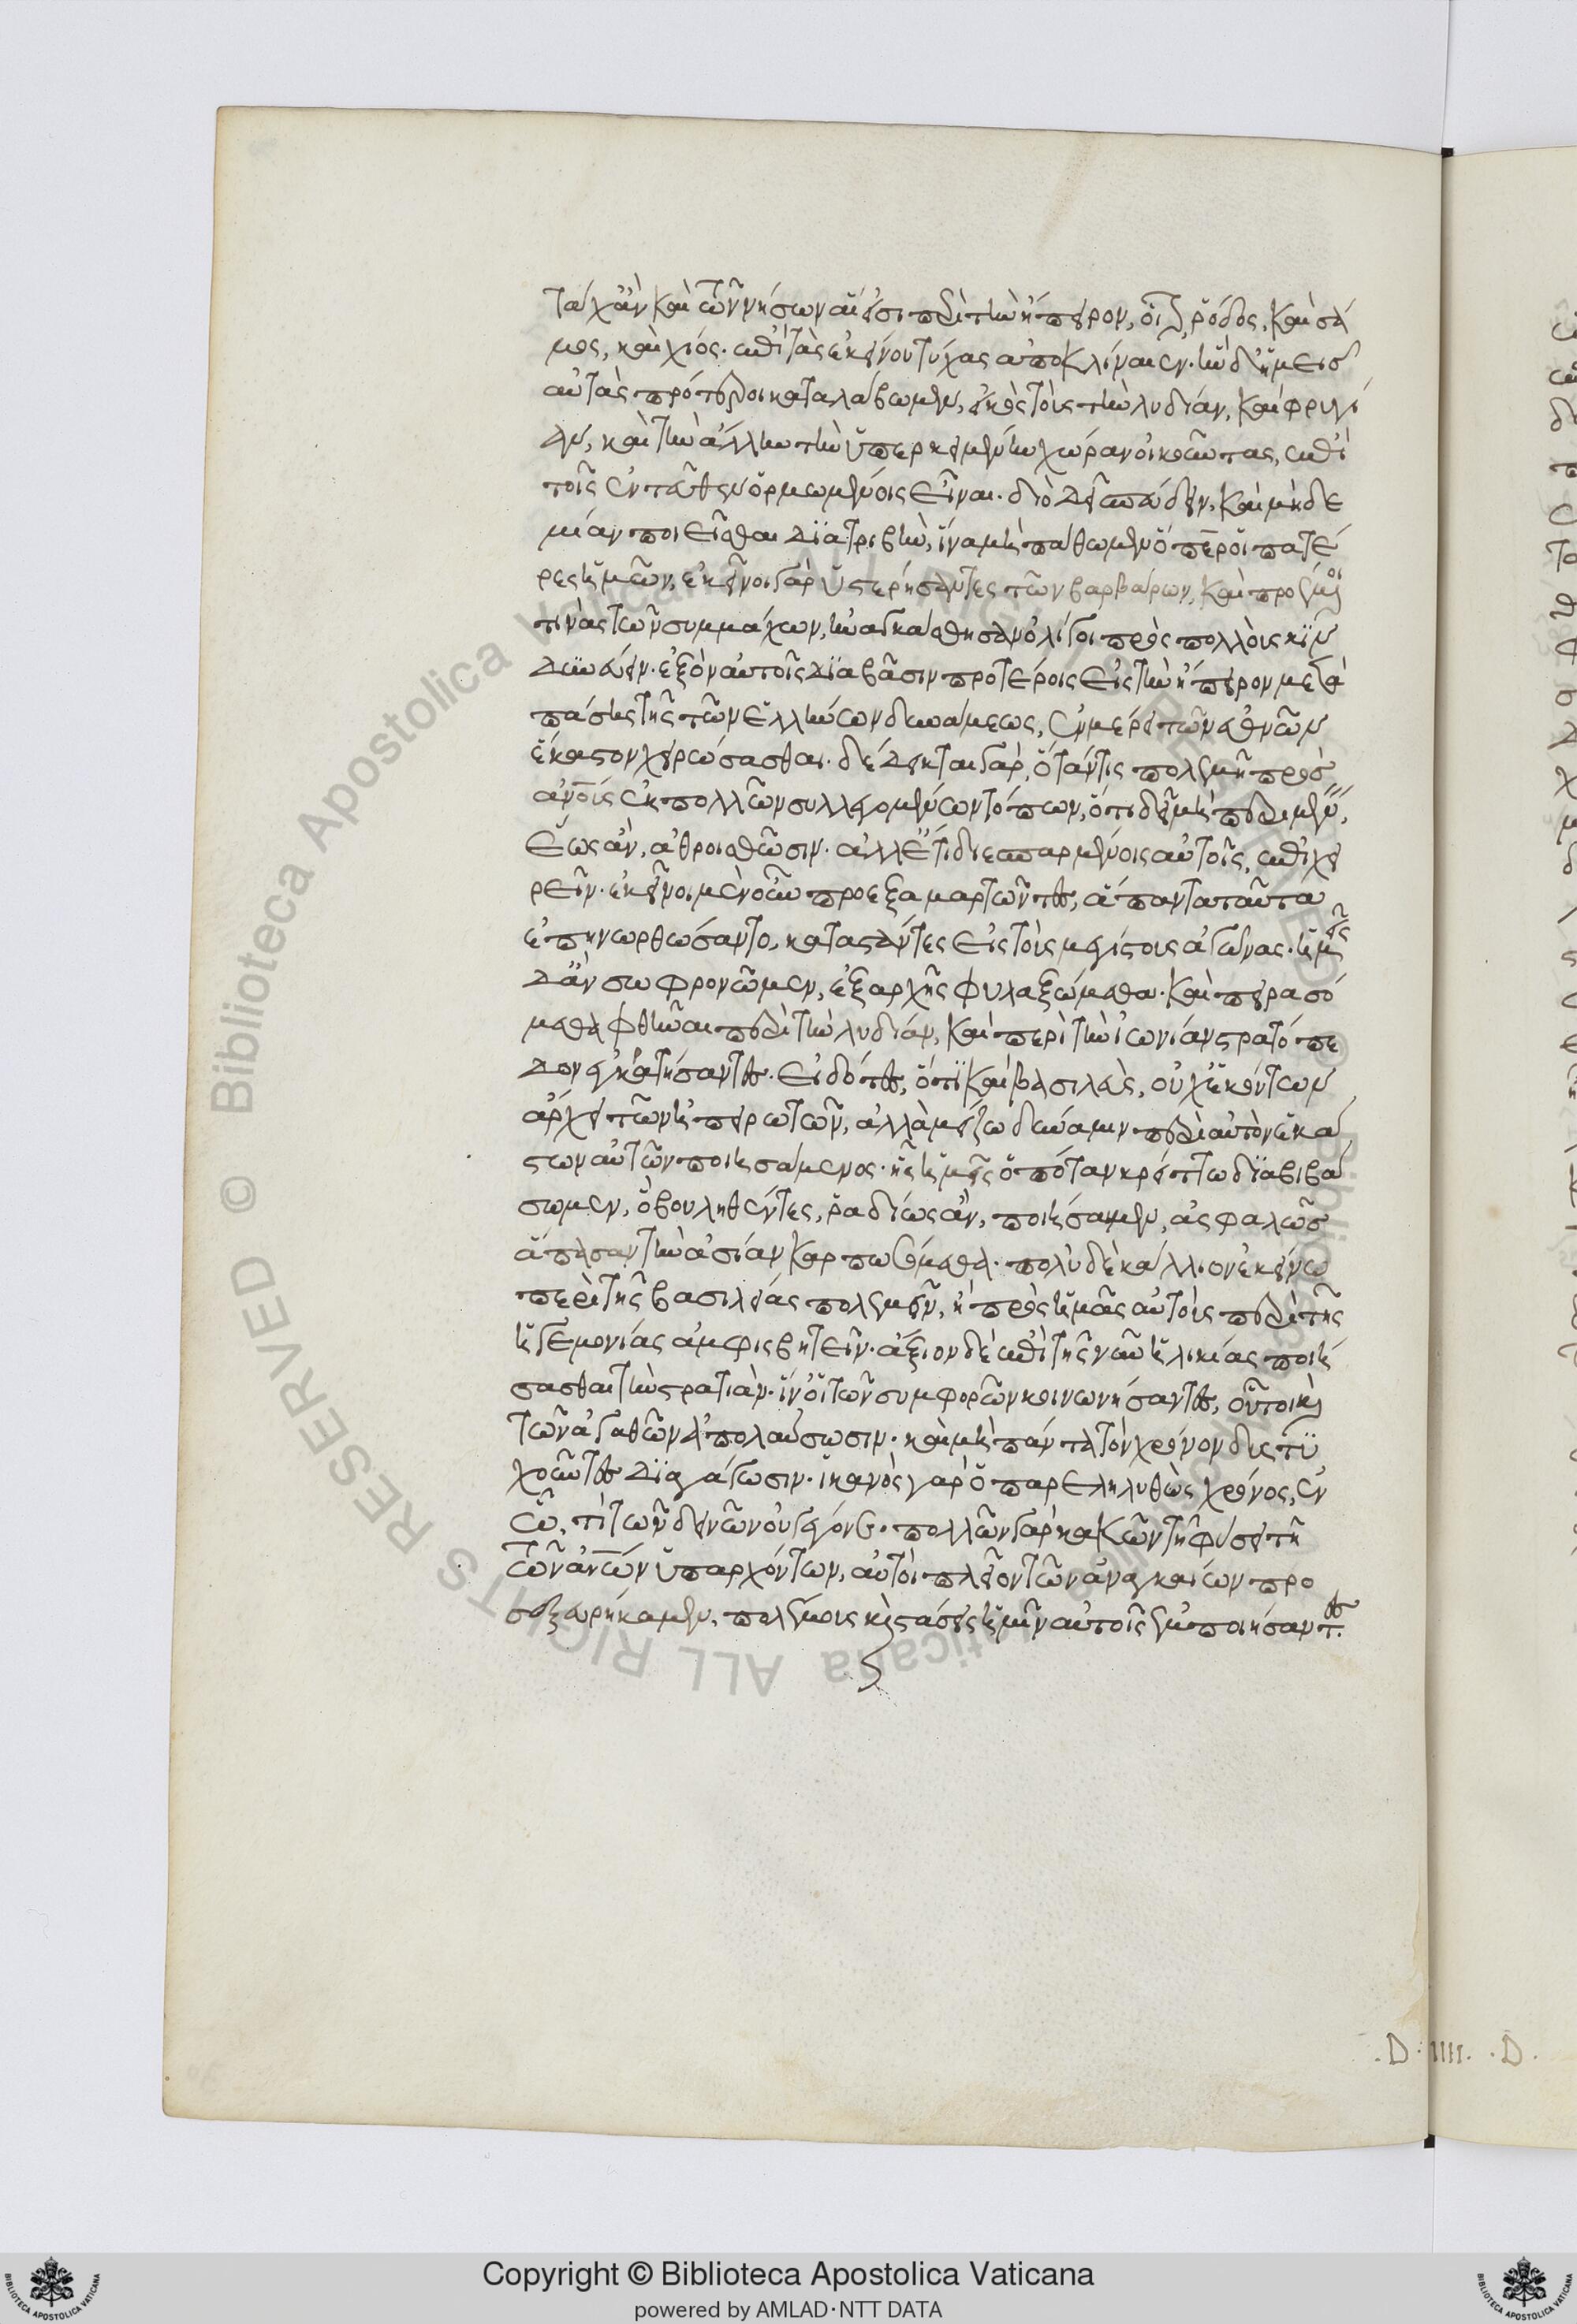 τάχ' ἂν καὶ τῶν νήσων αἵ εἰσι περὶ τὴν ἤπειρον, οἷον ῥόδος, καὶ σά
μος, καὶ χίος. ἐπὶ τὰς ἐκείνου τύχας ἀποκλίναιεν. ἢν δ' ἡμεῖς
αὐτὰς πρότεροι καταλάβωμεν, εἰκὸς τοὺς τὴν λυδίαν, καὶ φρυγί
αν, καὶ τὴν ἄλλην τὴν ὑπερκειμένην χώραν οἰκοῦντας, ἐπὶ
τοῖς ἐνταῦθεν ὁρμωμένοις εἶναι. διὸ δεῖ σπεύδειν, καὶ μηδε
μίαν ποιεῖσθαι διατριβὴν, ἵνα μὴ πάθωμεν ὅπερ οἱ πατέ
ρες ἡμῶν, ἐκεῖνοι γὰρ ὑστερήσαντες τῶν βαρβάρων, καὶ προέμενοί
τινας τῶν συμμάχων, ἠναγκάσθησαν ὀλίγοι πρὸς πολλοὺς κιν
δυνεύειν. ἐξὸν αὐτοῖς διαβᾶσιν προτέροις εἰς τὴν ἤπειρον μετὰ
πάσης τῆς τῶν ἑλλήνων δυνάμεως, ἐν μέρει τῶν ἐθνῶν
ἕκαστον χειρώσασθαι. δέδεικται γὰρ, ὅταν τις πολεμῇ πρὸς
ἀνοὺς ἐκ πολλῶν συλλεγομένων τόπων, ὅτι δεῖ μὴ περιμένειν,
ἕως ἂν, ἀθροισθῶσιν. ἀλλ' ἔτι διεσπαρμένοις αὐτοῖς, ἐπιχει
ρεῖν. ἐκεῖνοι μὲν οὖν προεξαμαρτόντες, ἅπαντα ταῦτα
ἐπηνωρθώσαντο, καταστάντες εἰς τοὺς μεγίστους ἀγῶνας. ἡμεῖς
δ' ἂν σωφρονῶμεν, ἐξ ἀρχῆς φυλαξώμεθα. καὶ πειρασό
μεθα φθῆναι περὶ τὴν λυδίαν, καὶ περὶ τὴν ἰωνίαν στρατόπε
δον ἐγκαταστήσαντες. εἰδότες, ὅτι καὶ βασιλεὺς, οὐχ ἑκόντων
ἄρχει τῶν ἠπειρωτῶν, ἀλλὰ μείζω δύναμιν περὶ αὐτὸν ἑκά
στων αὐτῶν ποιησάμενος. ἧς ἡμεῖς ὁπόταν κρείττω διαβιβά
σωμεν, ὃ βουληθέντες, ῥαδίως ἂν, ποιήσαιμεν, ἀσφαλῶς
ἅπασαν τὴν ἀσίαν καρπωσόμεθα. πολὺ δὲ κάλλιον ἐκείνῳ
περὶ τῆς βασιλείας πολεμεῖν, ἢ πρὸς ἡμᾶς αὐτοὺς περὶ τῆς
ἡγεμονίας ἀμφισβητεῖν. ἄξιον δὲ ἐπὶ τῆς νῦν ἡλικίας ποιή
σασθαι τὴν στρατιὰν. ἵν' οἱ τῶν συμφορῶν κοινωνήσαντες, οὗτοι καὶ
τῶν ἀγαθῶν ἀπολαύσωσιν. καὶ μὴ πάντα τὸν χρόνον δυστυ
χοῦντες διαγάγωσιν. ἱκανὸς γὰρ ὁ παρεληλυθὼς χρόνος, ἐν
ᾧ, τί τῶν δεινῶν οὐ γέγονεν. πολλῶν γὰρ κακῶν τῇ φύσει τῇ
τῶν ἀνῶν ὑπαρχόντων, αὐτοὶ πλείον τῶν ἀναγκαίων προ
σεξευρήκαμεν, πολέμους καὶ στάσεις ἡμῖν αὐτοῖς ἐμποιήσαντες.
.D. IIII. .D.
Copyright © Biblioteca Apostolica Vaticana
powered by AMLAD·NTT DATA